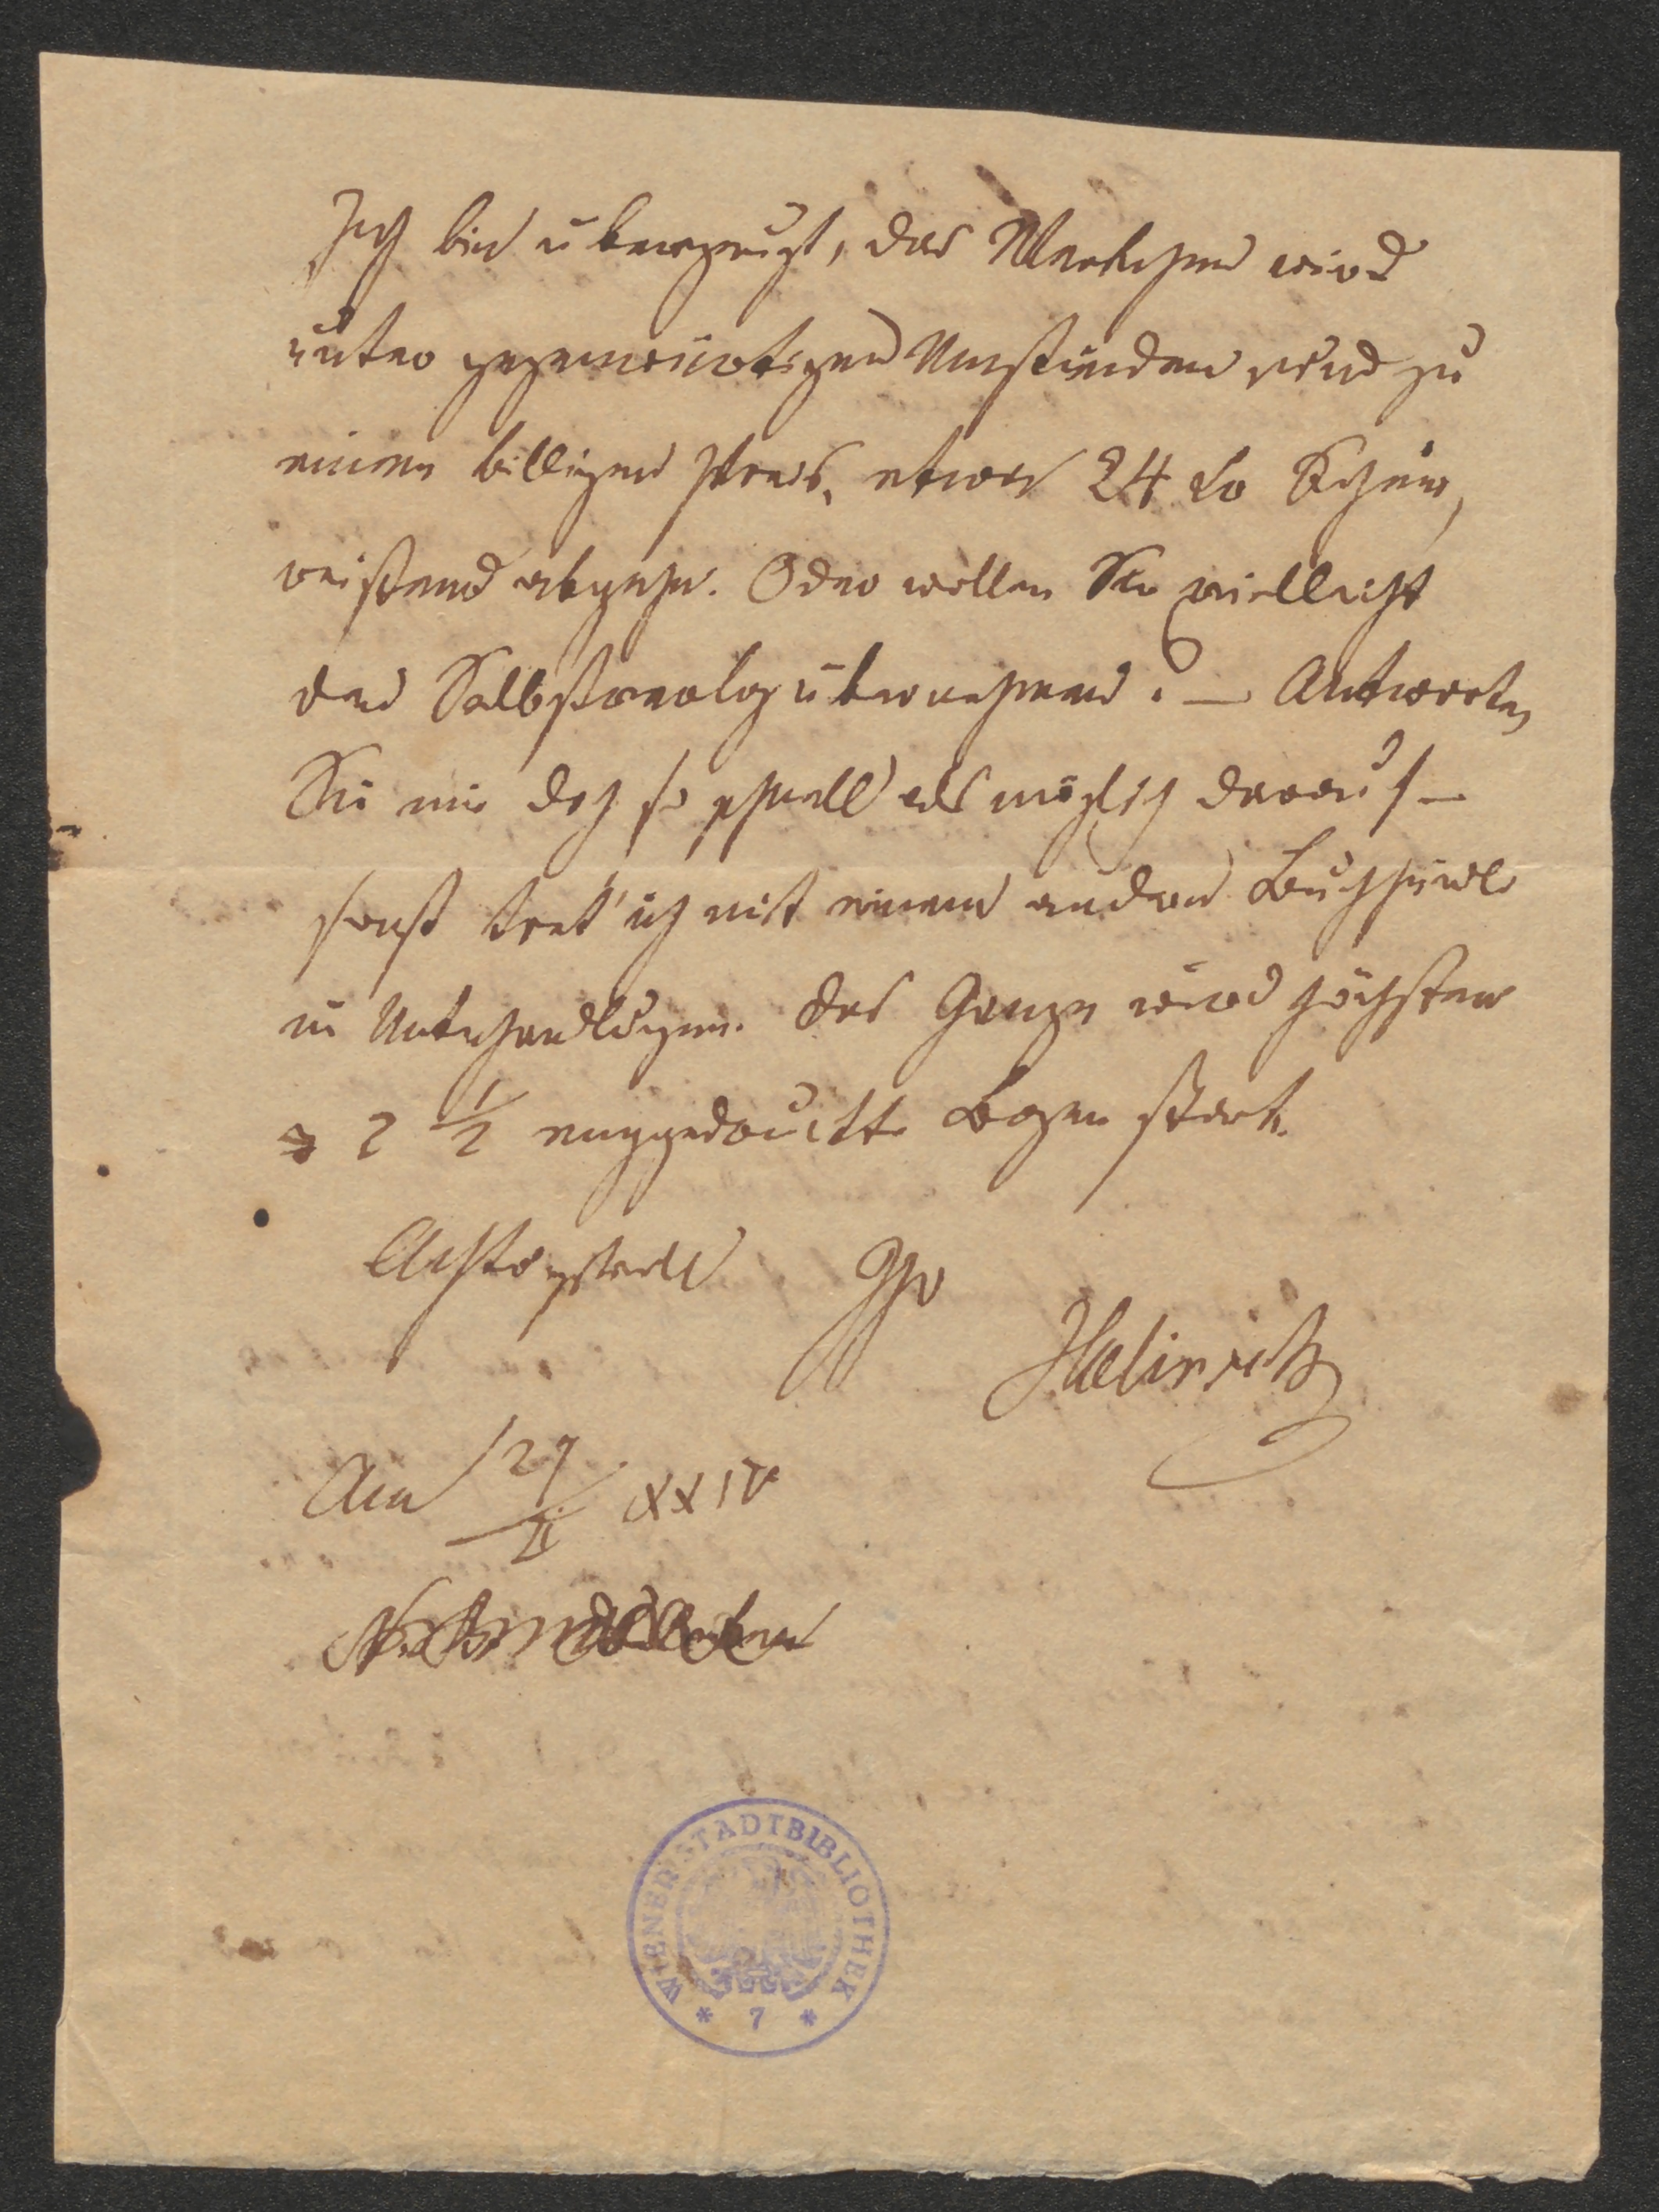 Ich bin überzeugt, das Werkchen wird
unter gegenwärtigen Umständen und zu
einem billigen Preis, etwa 24 Schein,
reißend abgehn. Oder wollen Sie vielleicht
den Selbstverlag übernehmen? — Antworten
Sie mir doch so schnell als möglich darauf —
sonst tret' ich mit einem andern Buchhändl
in Unterhandlungen. Das Ganze wird höchstens
2 1/2 enggedruckte Bogen stark.
Achtungsvoll Ihr
Halirsch
Am 27/II XXIV
WIENER STADTBIBLIOTHEK
* 7 *